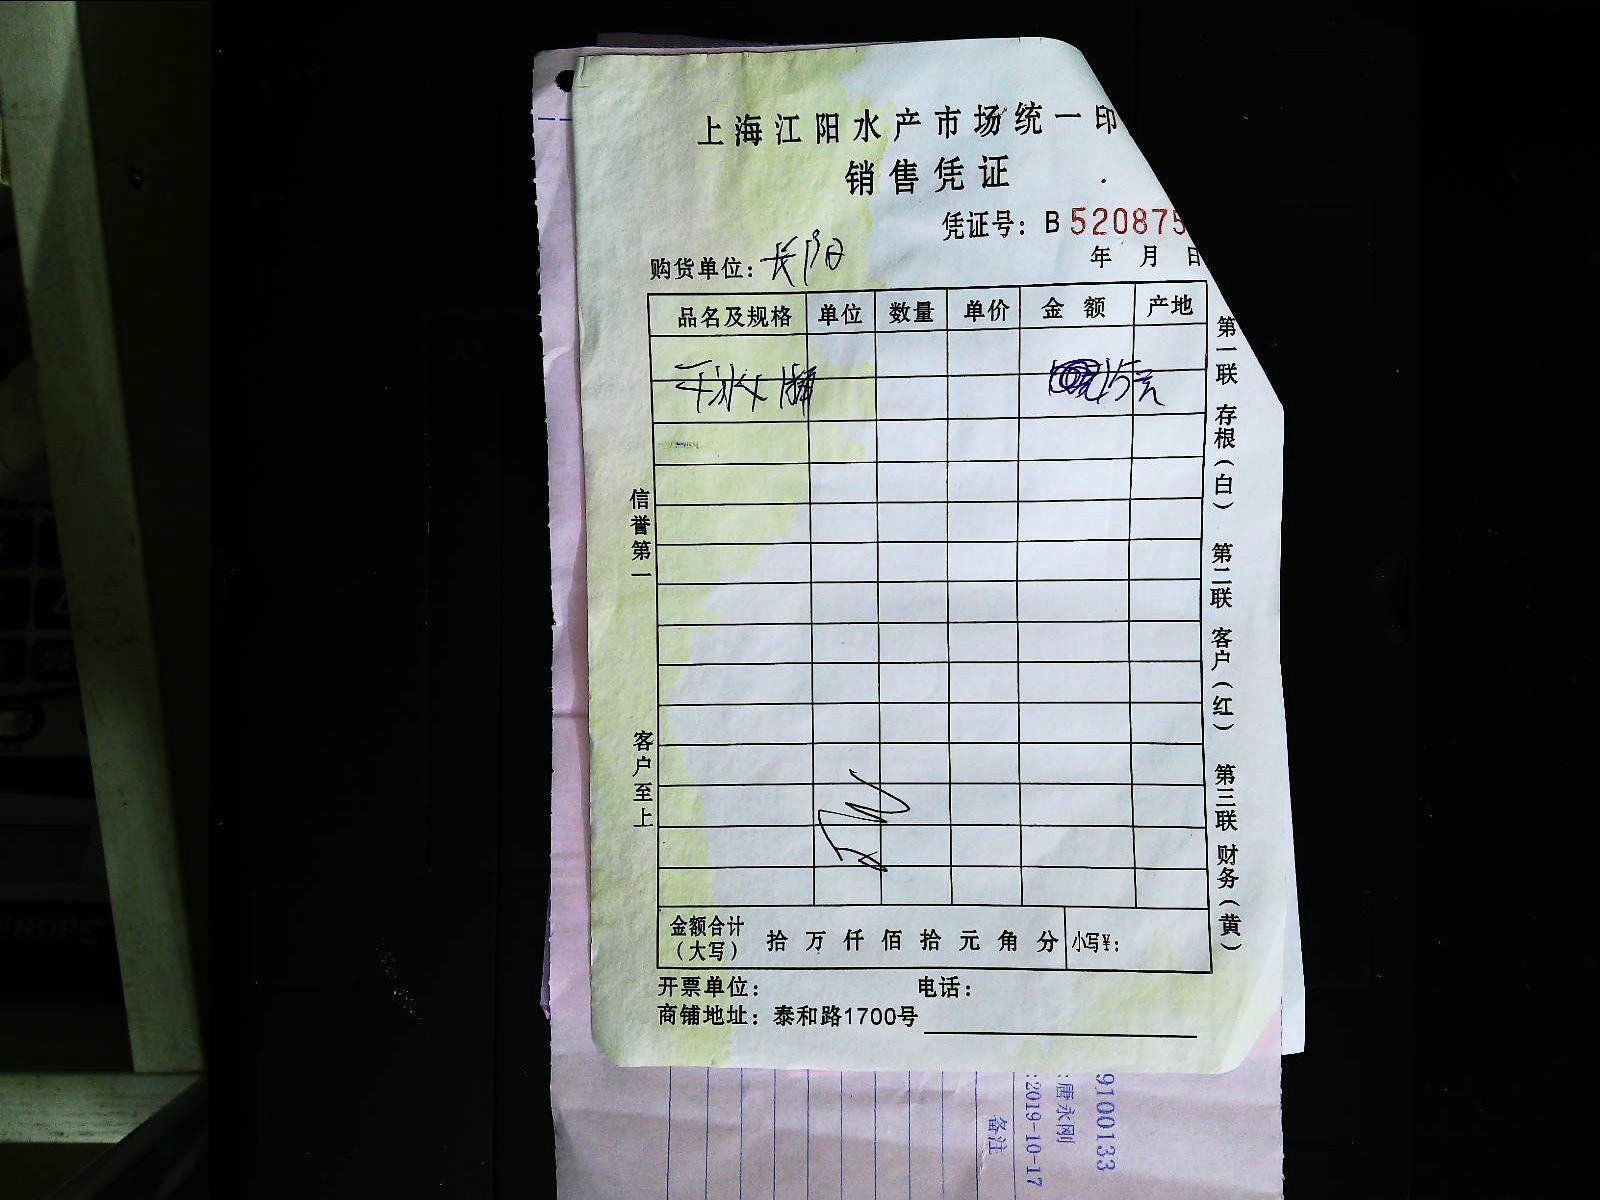 上海江阳水产市场统一印
销售凭证
凭证号：B 520875
年 月 日
购货单位：
品名及规格 单位 数量 单价 金 额 产地
15元
信誉第一
客户至上
第一联 存根（白） 第二联 客户（红） 第三联 财务（黄）
金额合计（大写） 拾 万 仟 佰 拾 元 角 分 小写¥：
开票单位： 电话：
商铺地址：泰和路1700号
9100133
:唐永刚
:2019-10-17
备注